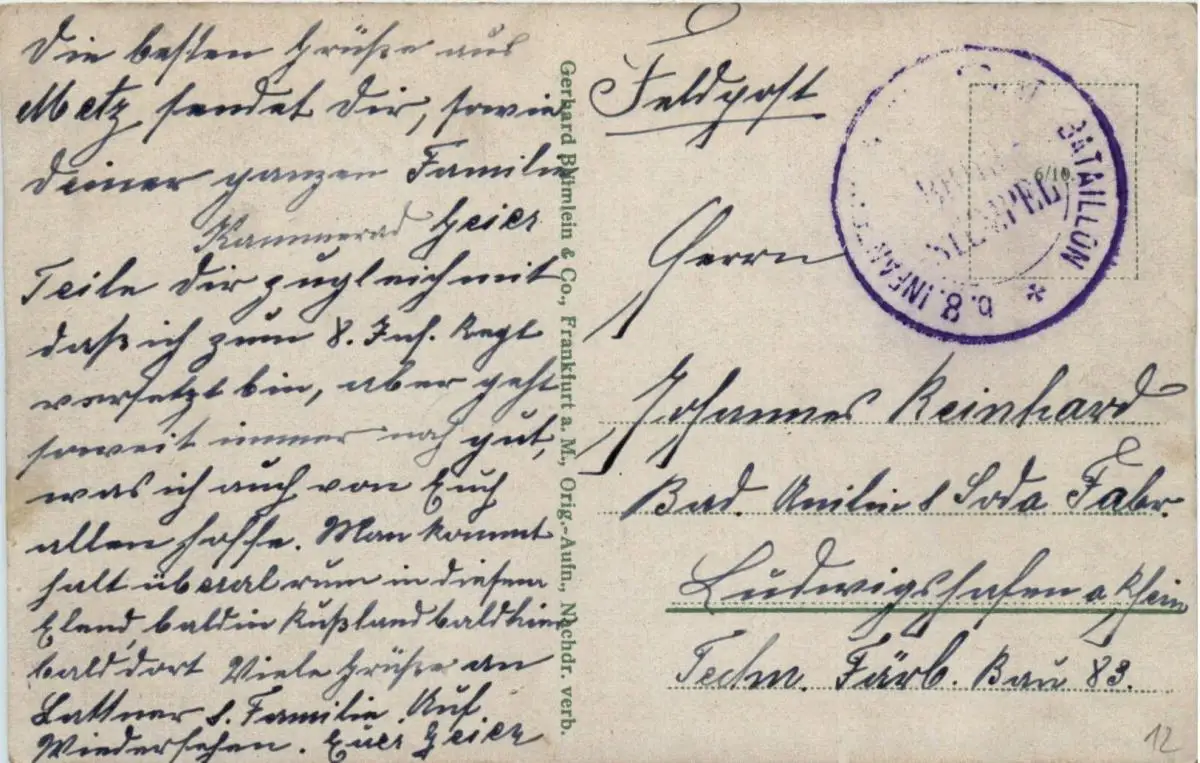 Die besten Grüße aus
Metz sendet Dir, sowie
deiner ganzen Familie
Kammerad Geier
Teile dir zugleich mit
daß ich zum 8. Inf. Regt
versetzt bin, aber geht
soweit immer noch gut,
was ich auch von Euch
allen hoffe. Man kommt
halt überal rum in diesem
Elend, bald in Rußland bald hier
bald dort Viele Grüße an
Lattner &. Familie. Auf
Wiedersehen. Euer Geier
Gerhard Blümlein & Co., Frankfurt a. M., Orig.-Aufn., Nachdr. verb.
Feldpost
BATAILLON
STEMPEL
b. 8. INFANT
6/16
Herrn
Johannes Reinhard
Bad. Anilin & Soda Fabr.
Ludwigshafen a Rhein
Techn. Färb. Bau 83.
12